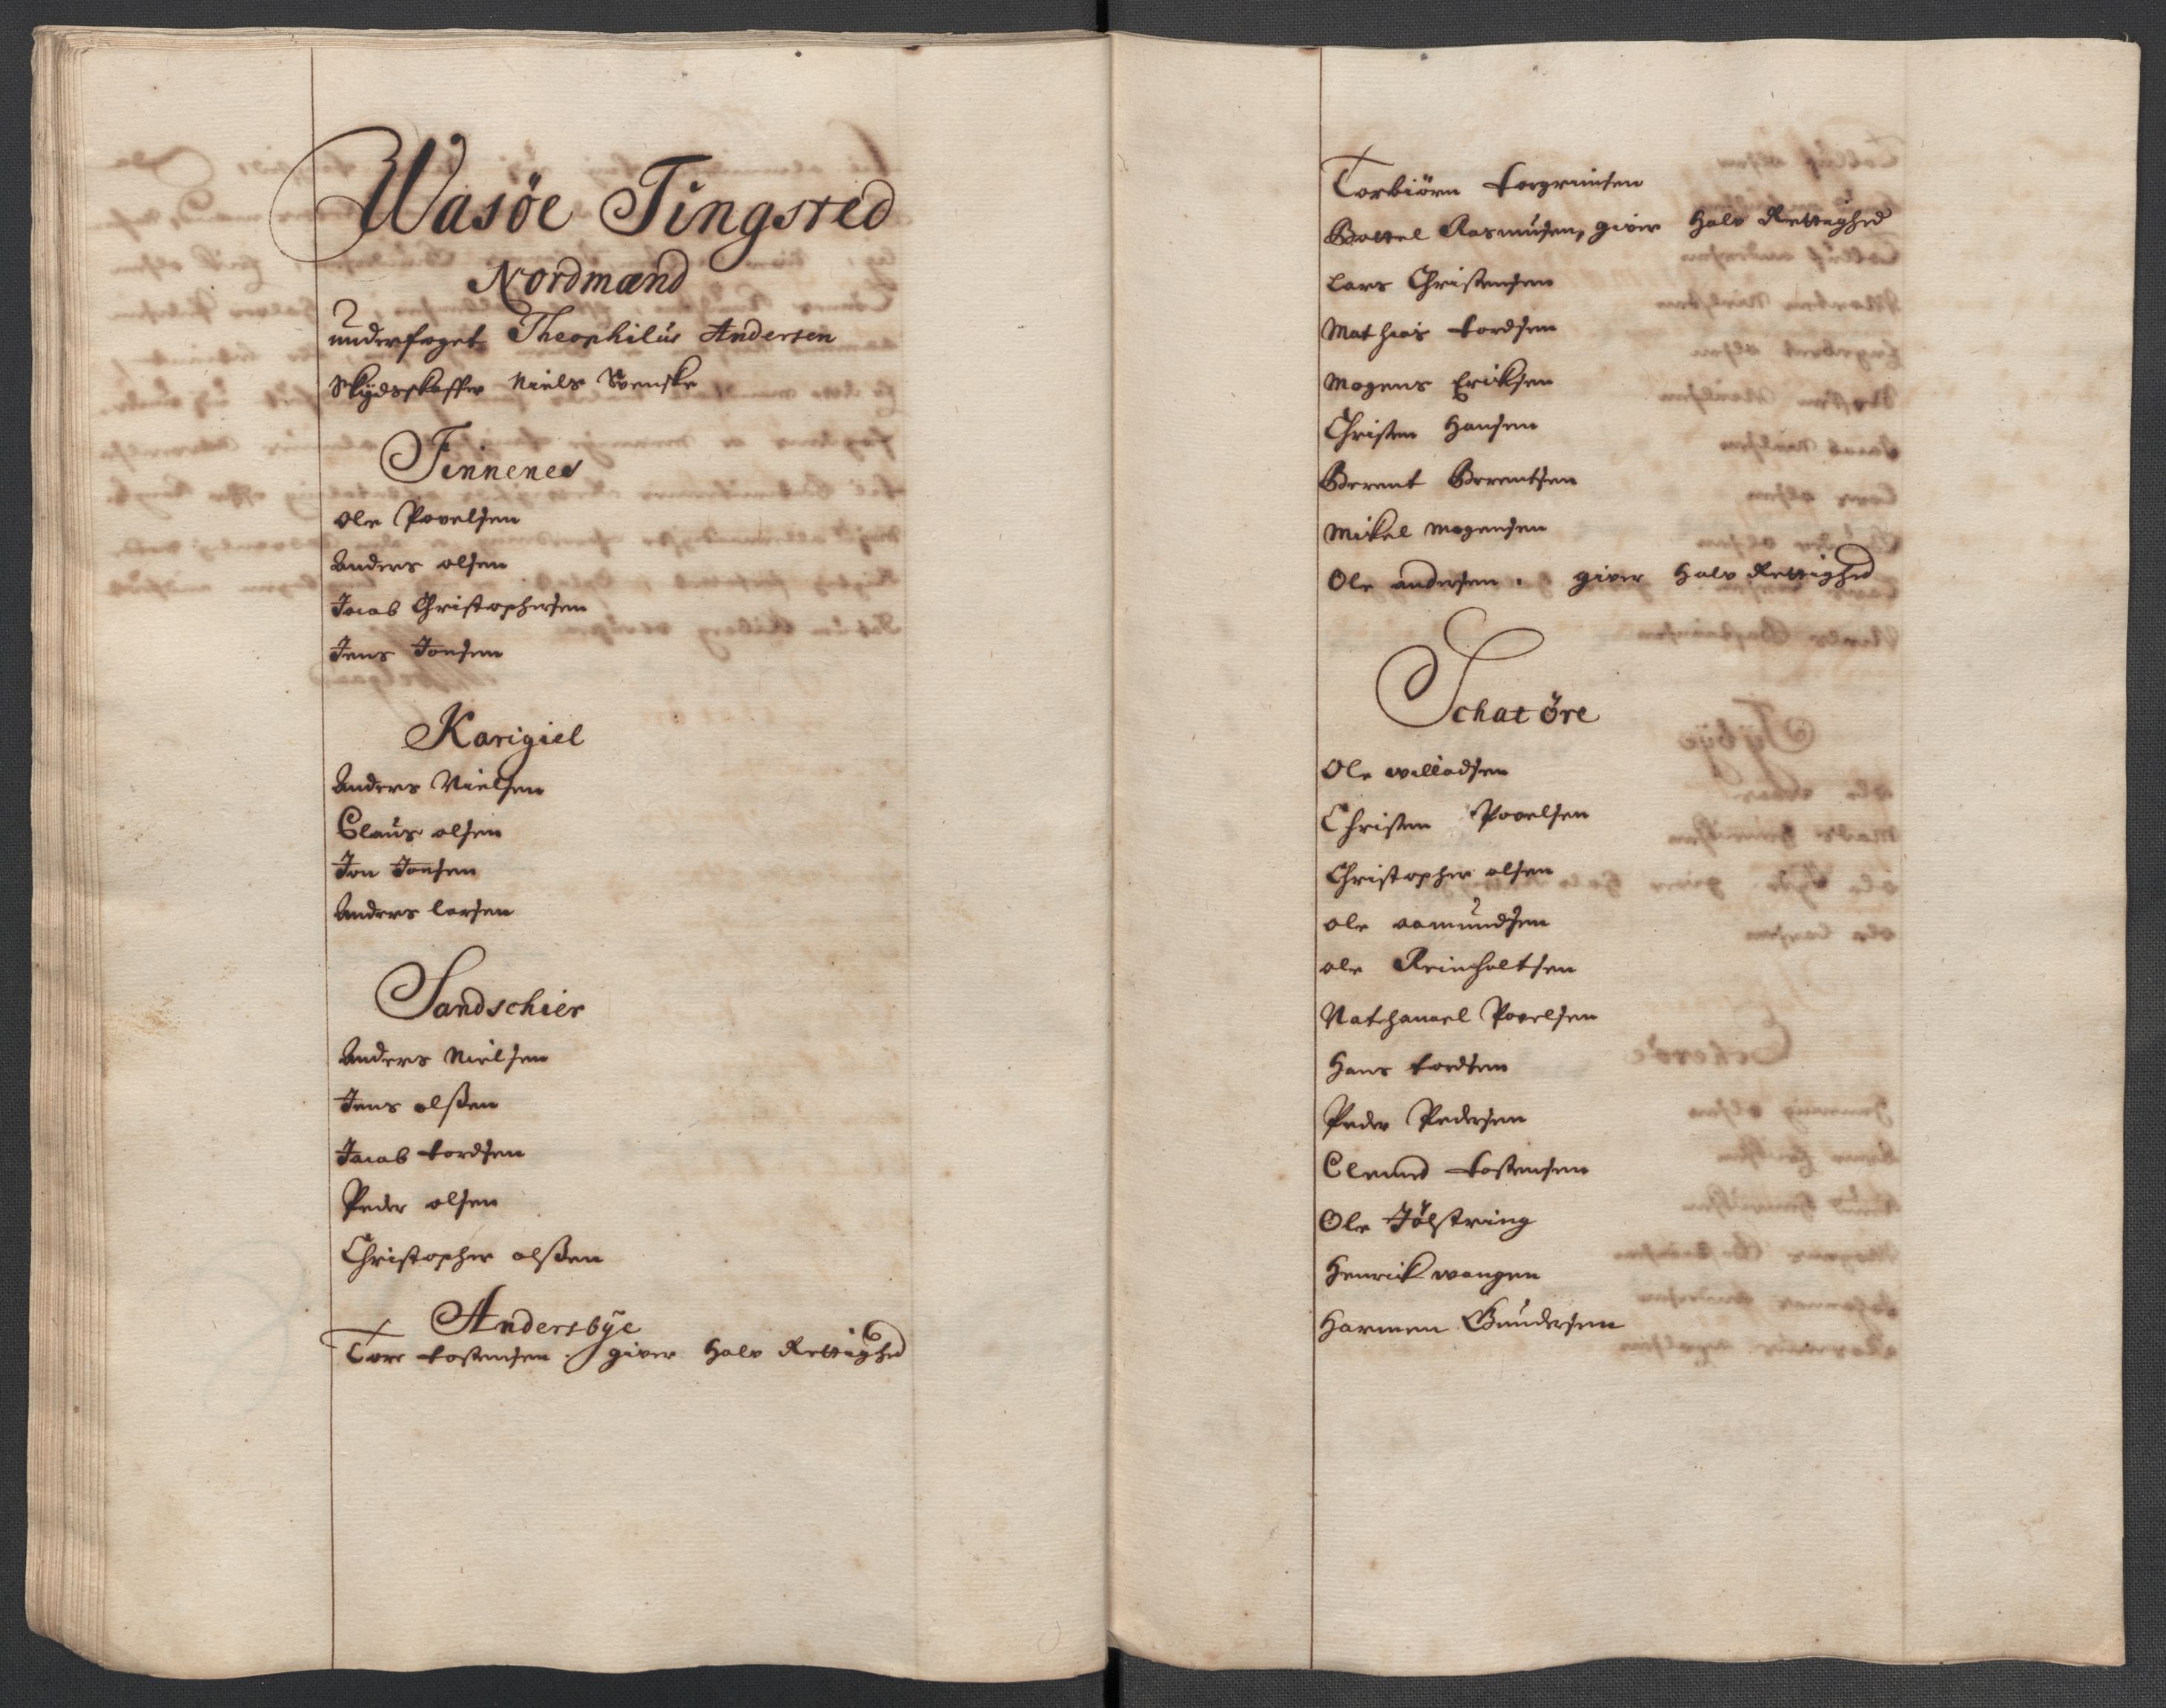 Wasöe Tingsted
Nordmænd
underfoget Theophilus Andersen
Skÿdsskaffer Niels Svenske
Finnenes
Ole Povelsen
Anders olsen
Jacob Christophersen
Jens Jonsen
Karigiel
Anders Nielsen
Claus olsen
Jon Jonsen
Anders larsen
Sandschier
Anders Nielsen
Jens olßen
Jacob tordsen
Peder olsen
Christopher olßen
Andersbÿe
Tore tostensen. giver halv Rettighed
Torbiörn torgrimsen
Bottel Rasmusen, giver halv Rettighed
Lars Christensen
Mathias tordsen
Mogens Eriksen
Christen Hansen
Berent Berentsen
Mikel Mogensen
Ole andersen. giver halv Rettighed
Schatöre
Ole willadsen
Christen Povelsen
Christopher olsen
ole aamundsen
ole Reinholtsen
Nathanael Povelsen
Hans tordsen
Peder Pedersen
Clemed tostensen
Ole Jölstring
Henrick wangen
Harmen Gundersen